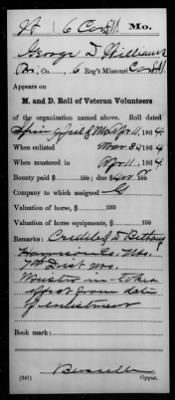 6 Cav Mo.
George D Williams
Co., 6 Reg't Missouri Cav
Appears on
M. and D. Roll of Veteran Volunteers
of the organization named above. Roll dated
Apr 11, 1864
When enlisted Mar 24 1864
When mustered in Apr 11, 1864
Bounty paid $ 100; due $ 100
Company to which assigned G
Valuation of horse, $ 100
Valuation of horse equipments, $ 100
Remarks: Credited to Bethany
Harrison Co. Mo.
7th Dist Mo.
Muster in takes
effect from date
of enlistment
Book mark:
(841) Copyist.